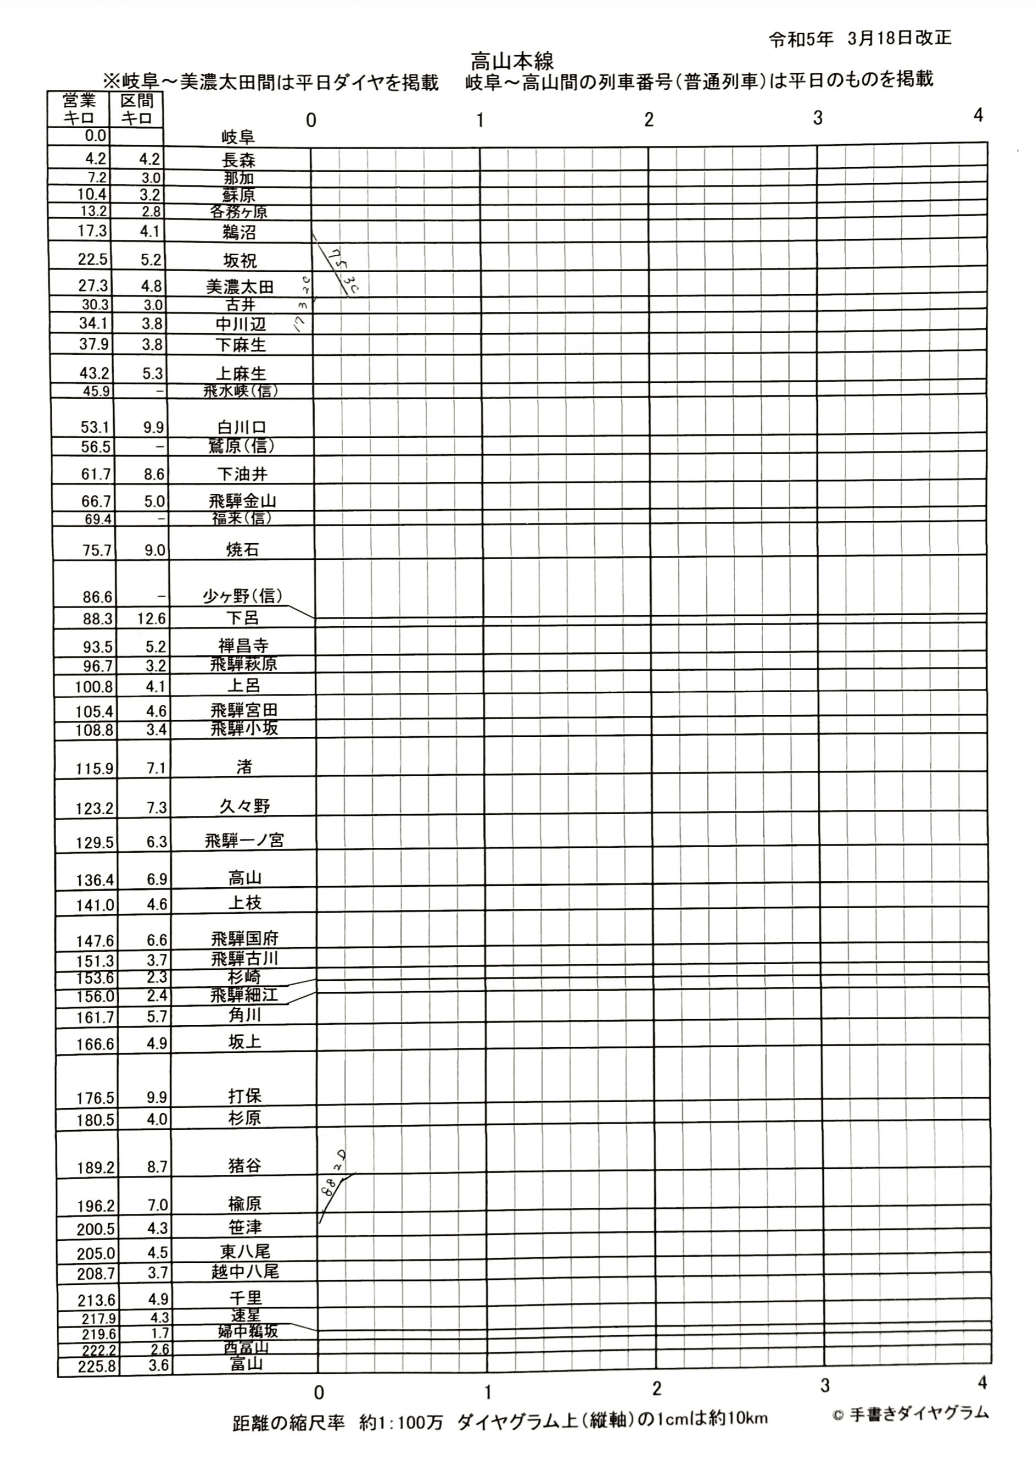 令和5年 3月18日改正
高山本線
※岐阜～美濃太田間は平日ダイヤを掲載 岐阜～高山間の列車番号(普通列車)は平日のものを掲載
営業キロ 区間キロ 0 1 2 3 4
0.0 岐阜
4.2 4.2 長森
7.2 3.0 那加
10.4 3.2 蘇原
13.2 2.8 各務ヶ原
17.3 4.1 鵜沼
22.5 5.2 坂祝
27.3 4.8 美濃太田
30.3 3.0 古井
34.1 3.8 中川辺
37.9 3.8 下麻生
43.2 5.3 上麻生
45.9 - 飛水峡(信)
53.1 9.9 白川口
56.5 - 鷲原(信)
61.7 8.6 下油井
66.7 5.0 飛騨金山
69.4 - 福来(信)
75.7 9.0 焼石
86.6 - 少ヶ野(信)
88.3 12.6 下呂
93.5 5.2 禅昌寺
96.7 3.2 飛騨萩原
100.8 4.1 上呂
105.4 4.6 飛騨宮田
108.8 3.4 飛騨小坂
115.9 7.1 渚
123.2 7.3 久々野
129.5 6.3 飛騨一ノ宮
136.4 6.9 高山
141.0 4.6 上枝
147.6 6.6 飛騨国府
151.3 3.7 飛騨古川
153.6 2.3 杉崎
156.0 2.4 飛騨細江
161.7 5.7 角川
166.6 4.9 坂上
176.5 9.9 打保
180.5 4.0 杉原
189.2 8.7 猪谷
882D
196.2 7.0 楡原
200.5 4.3 笹津
205.0 4.5 東八尾
208.7 3.7 越中八尾
213.6 4.9 千里
217.9 4.3 速星
219.6 1.7 婦中鵜坂
222.2 2.6 西富山
225.8 3.6 富山
0 1 2 3 4
距離の縮尺率 約1:100万 ダイヤグラム上(縦軸)の1cmは約10km
© 手書きダイヤグラム